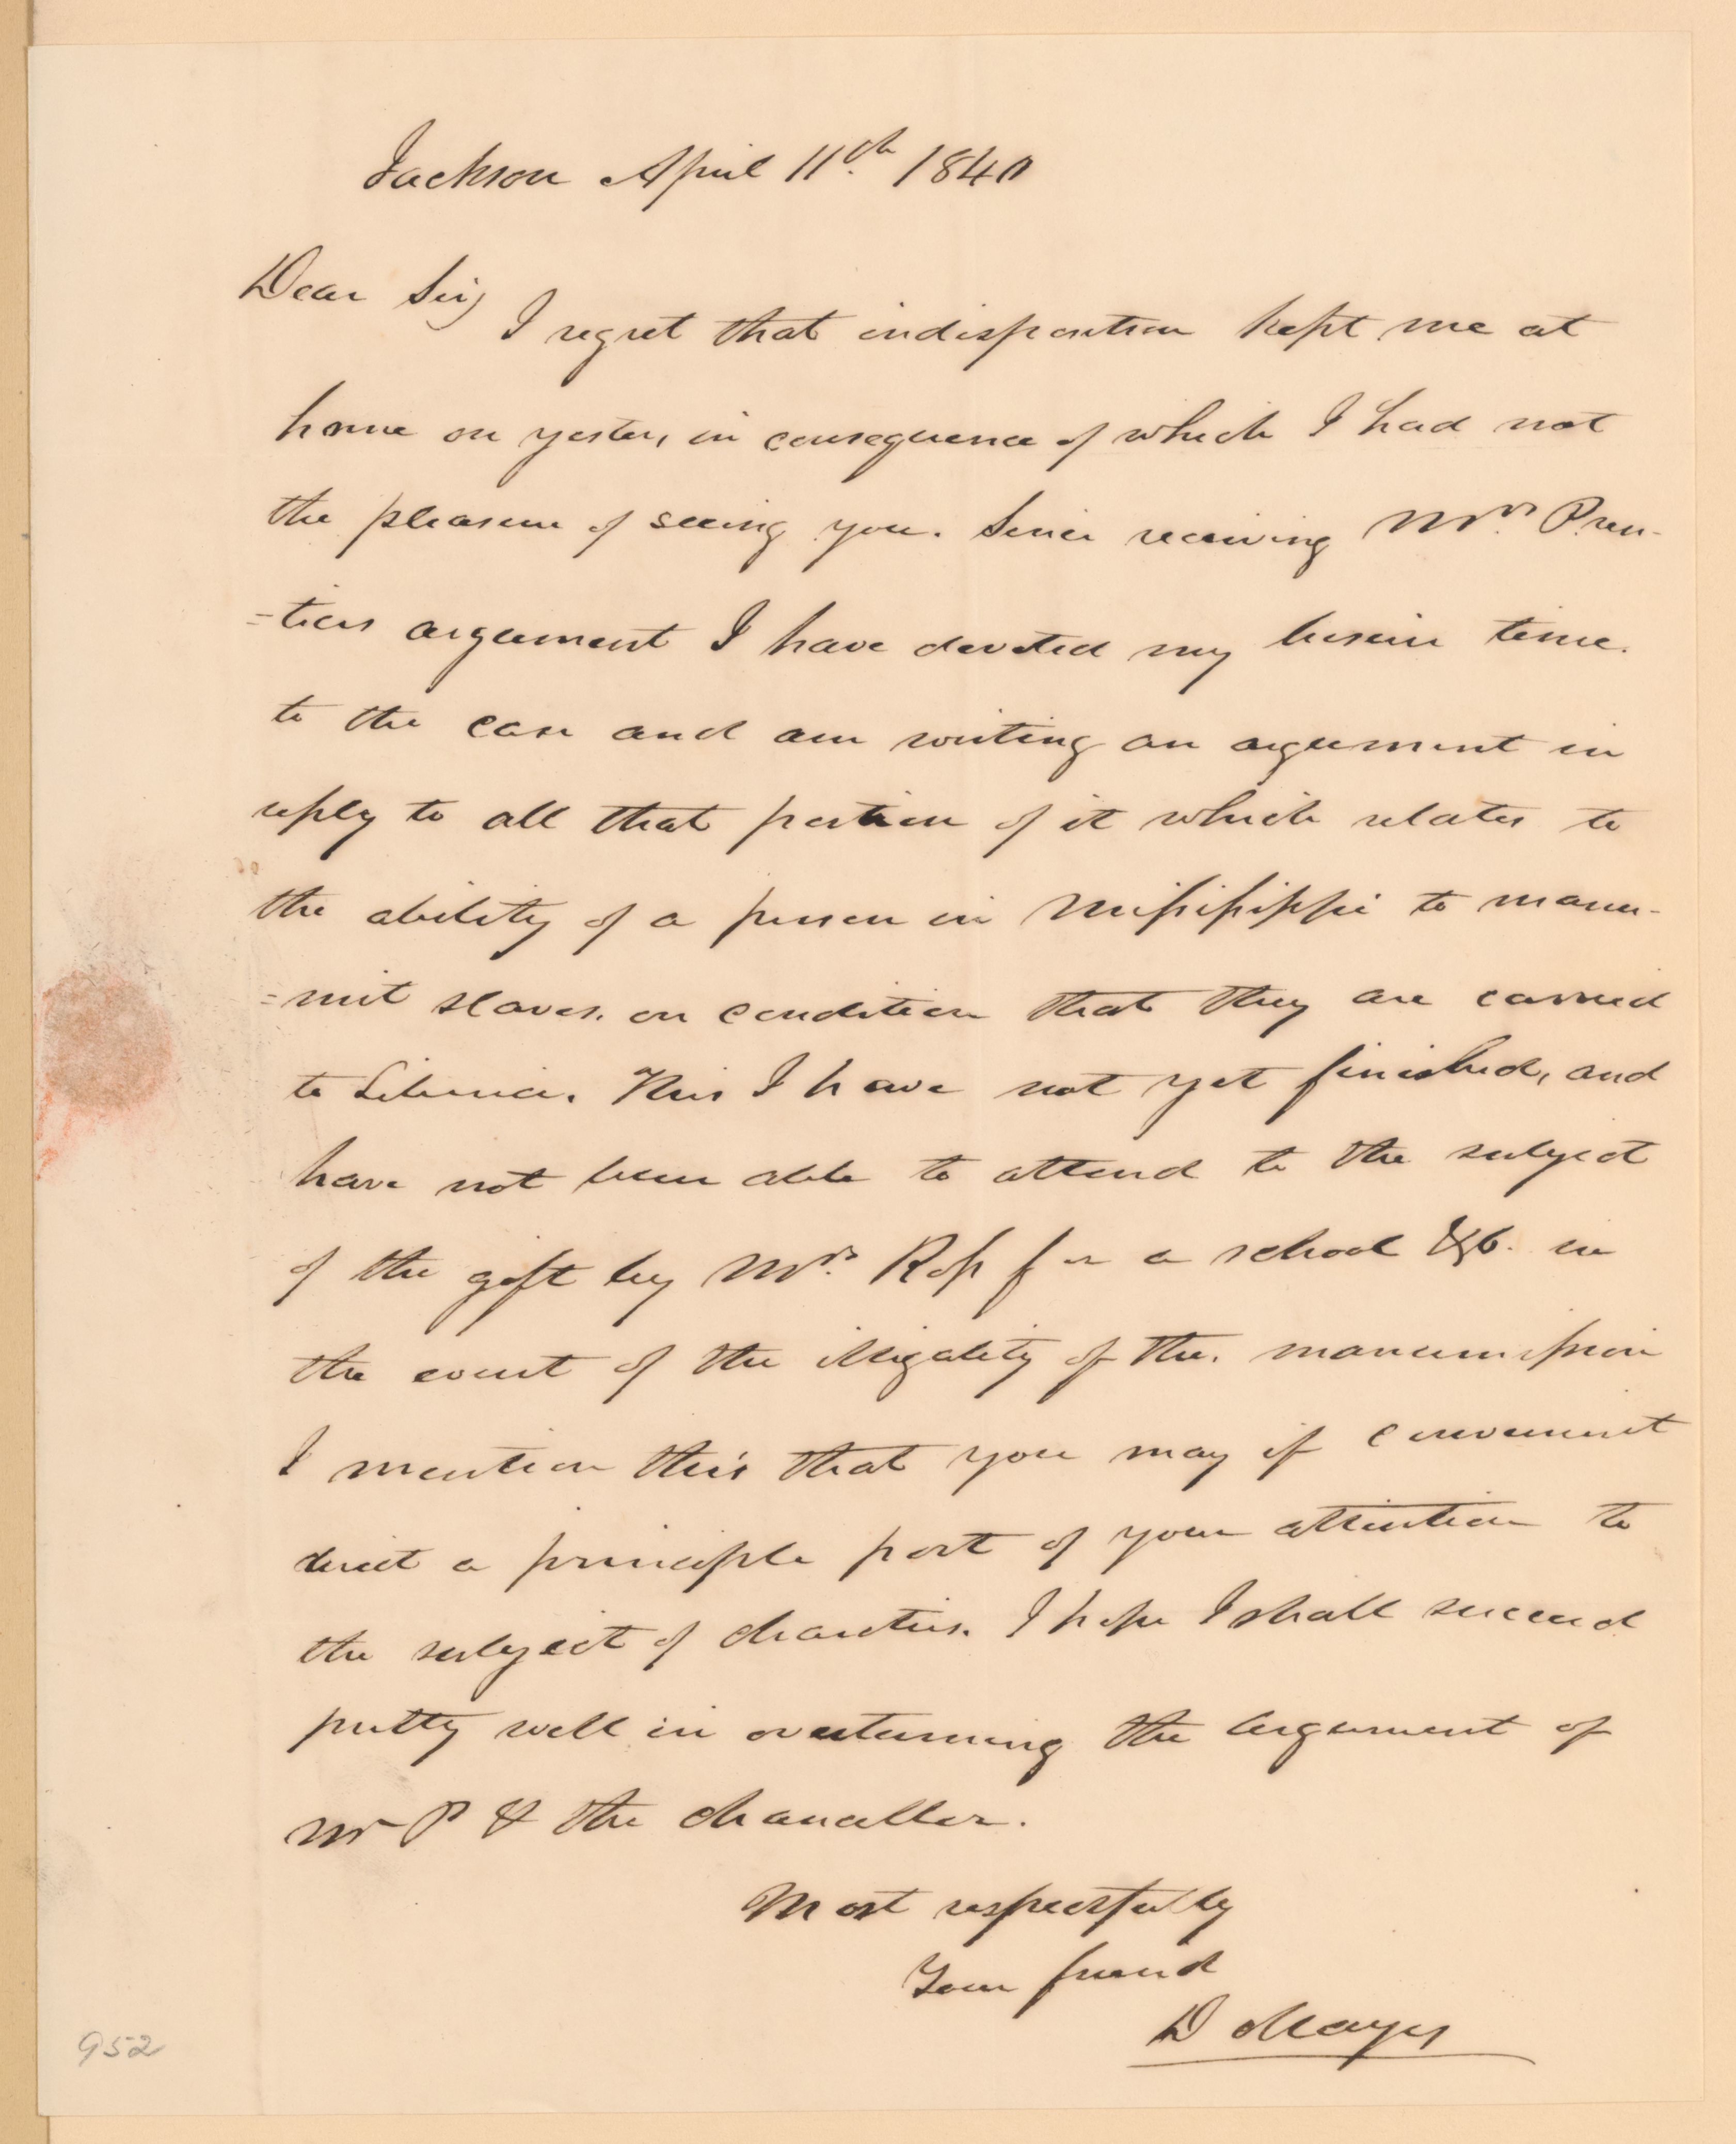 Jackson April 11th. 1840
Dear Sir,
I regret that indisposition kept me at
home on yester, in consequence of which I had not
the pleasure of seeing you. Since receiving Mrs. Pren-
=tiss argument I have devoted my leisure time.
to the case and am writing an argument in
reply to all that portion of it which relates to
the ability of a person in Mississippi to manu-
=mit slaves. on condition that they are carried
to Liberia. This I have not yet finished, and
have not been able to attend to the subject
of the gift by Mrs. Ross for a school &c. in
the event of the illegality of the. manumission
I mention this that you may if convenient
direct a principle part of your attention to
the subject of charities. I hope I shall succeed
pretty well in overturning the argument of
Mr P & the chancellor.
Most respectfully
Your friend
D Mayes
952